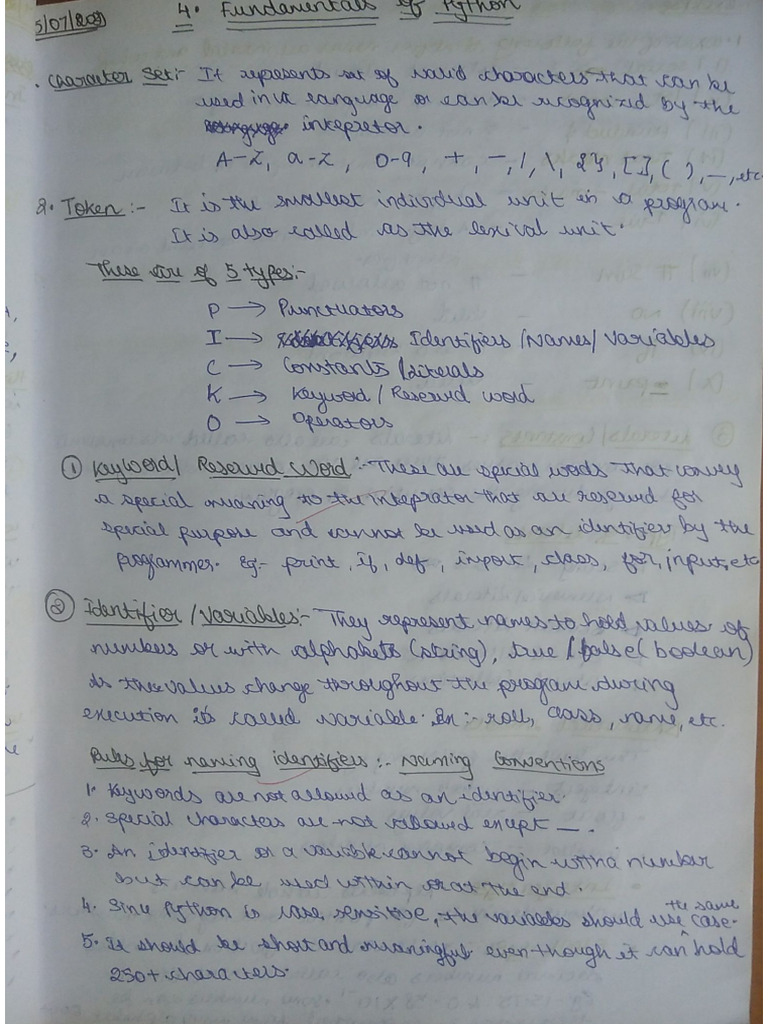 4. Fundamentals of Python
Character Set:- It represents set of valid characters that can be
used in a language or can be recognized by the
intepretor.
A-Z, a-z, 0-9, +, -, /, \, { }, [ ], ( ), _, etc
2. Token:- It is the smallest individual unit in a program.
It is also called as the lexical unit.
These are of 5 types:-
P → Punctuators
I → Identifiers /Names/ Variables
C → Constants /Literals
K → Keyword / Reserved word
O → Operators
① Keyword/ Reserved Word:- These are special words that convey
a special meaning to the inteprator that are reserved for
special purpose and cannot be used as an identifier by the
programmer. Eg:- print, if, def, import, class, for, input, etc
② Identifier /Variables:- They represent names to hold values of
numbers or with alphabets (string), true / false (boolean)
As the values change throughout the program during
execution it's called variable. Ex:- roll, class, name, etc.
Rules for naming identifiers:- Naming Conventions
1. Keywords are not allowed as an identifier.
2. Special characters are not allowed except _.
3. An identifier or a variable cannot begin with a number
but can be used within or at the end.
4. Since Python is case sensitive, the variables should use the same case.
5. It should be short and meaningful even though it can hold
250+ characters.